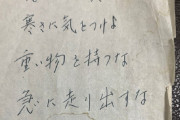 寒さに気をつけよ
重い物を持つな
急に走り出すな